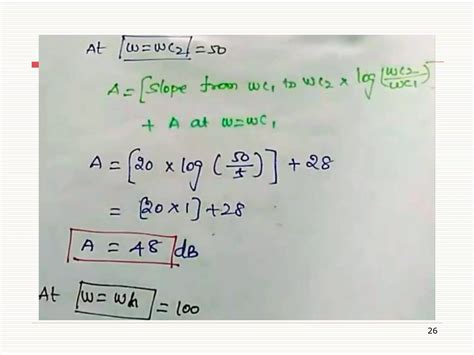 At w=wc2 =50
A=[slope from wc1 to wc2 x log(wc2/wc1)
+ A at w=wc1
A=[20 x log (50/5)] +28
= [20x1]+28
A = 48 dB
At w=wh =100
26